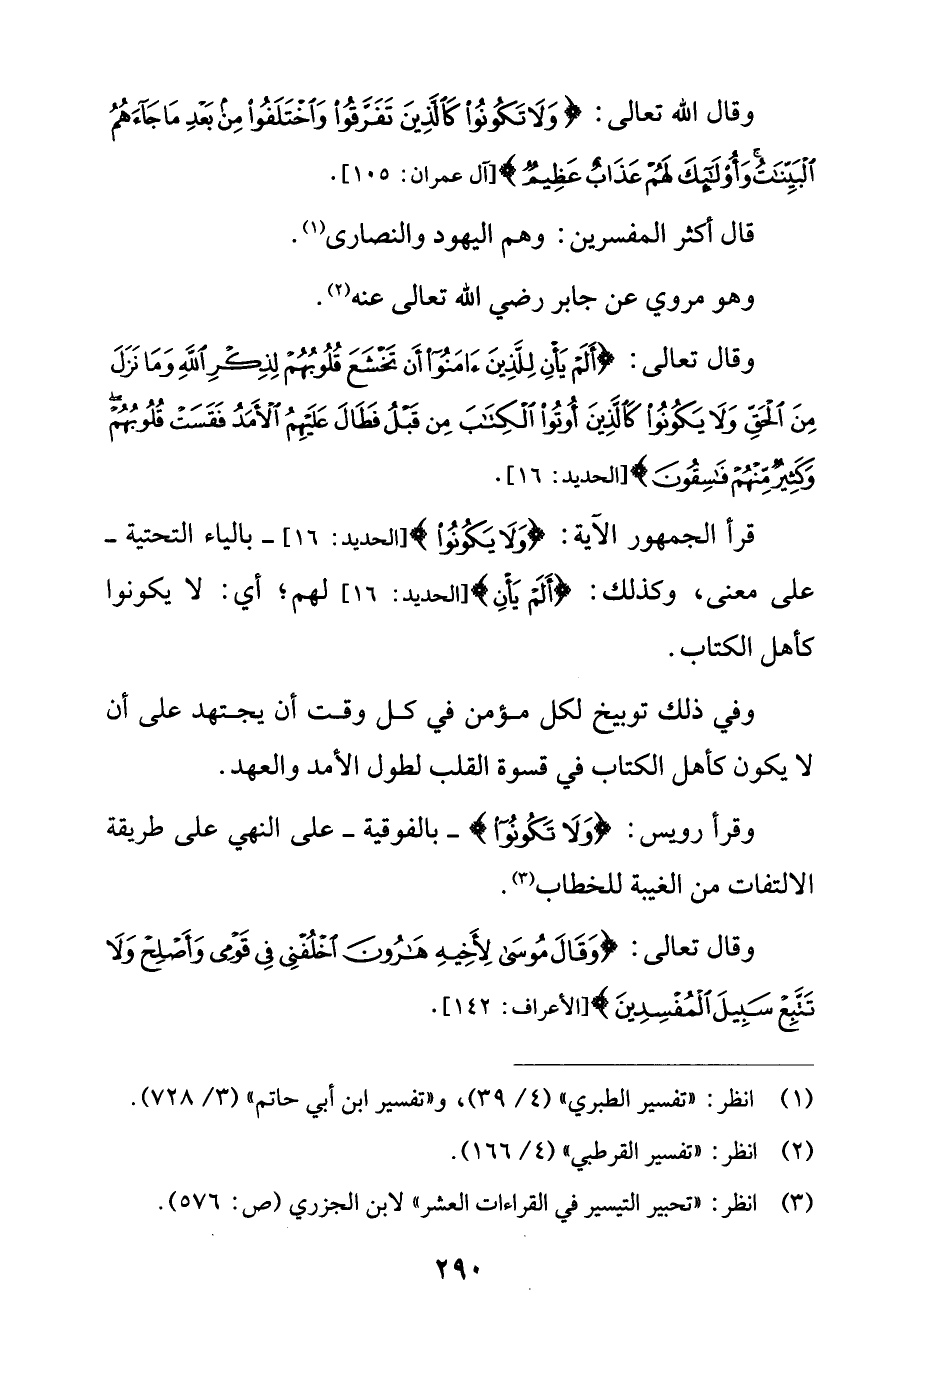 وقال الله تعالى: ﴿وَلَا تَكُونُوا۟ كَٱلَّذِينَ تَفَرَّقُوا۟ وَٱخْتَلَفُوا۟ مِنۢ بَعْدِ مَا جَآءَهُمُ
ٱلْبَيِّنَٰتُ ۚ وَأُو۟لَٰٓئِكَ لَهُمْ عَذَابٌ عَظِيمٌ﴾[آل عمران: ١٠٥].
قال أكثر المفسرين: وهم اليهود والنصارى(١).
وهو مروي عن جابر رضي الله تعالى عنه(٢).
وقال تعالى: ﴿أَلَمْ يَأْنِ لِلَّذِينَ ءَامَنُوٓا۟ أَن تَخْشَعَ قُلُوبُهُمْ لِذِكْرِ ٱللَّهِ وَمَا نَزَلَ
مِنَ ٱلْحَقِّ وَلَا يَكُونُوا۟ كَٱلَّذِينَ أُوتُوا۟ ٱلْكِتَٰبَ مِن قَبْلُ فَطَالَ عَلَيْهِمُ ٱلْأَمَدُ فَقَسَتْ قُلُوبُهُمْ ۖ
وَكَثِيرٌ مِّنْهُمْ فَٰسِقُونَ﴾[الحديد: ١٦].
قرأ الجمهور الآية: ﴿وَلَا يَكُونُوا۟﴾[الحديد: ١٦] ـ بالياء التحتية ـ
على معنى، وكذلك: ﴿أَلَمْ يَأْنِ﴾[الحديد: ١٦] لهم؛ أي: لا يكونوا
كأهل الكتاب.
وفي ذلك توبيخ لكل مؤمن في كل وقت أن يجتهد على أن
لا يكون كأهل الكتاب في قسوة القلب لطول الأمد والعهد.
وقرأ رويس: ﴿وَلَا تَكُونُوٓا﴾ ـ بالفوقية ـ على النهي على طريقة
الالتفات من الغيبة للخطاب(٣).
وقال تعالى: ﴿وَقَالَ مُوسَىٰ لِأَخِيهِ هَٰرُونَ ٱخْلُفْنِى فِى قَوْمِى وَأَصْلِحْ وَلَا
تَتَّبِعْ سَبِيلَ ٱلْمُفْسِدِينَ﴾[الأعراف: ١٤٢].
(١) انظر: «تفسير الطبري» (٤/ ٣٩)، و«تفسير ابن أبي حاتم» (٣/ ٧٢٨).
(٢) انظر: «تفسير القرطبي» (٤/ ١٦٦).
(٣) انظر: «تحبير التيسير في القراءات العشر» لابن الجزري (ص: ٥٧٦).
٢٩٠